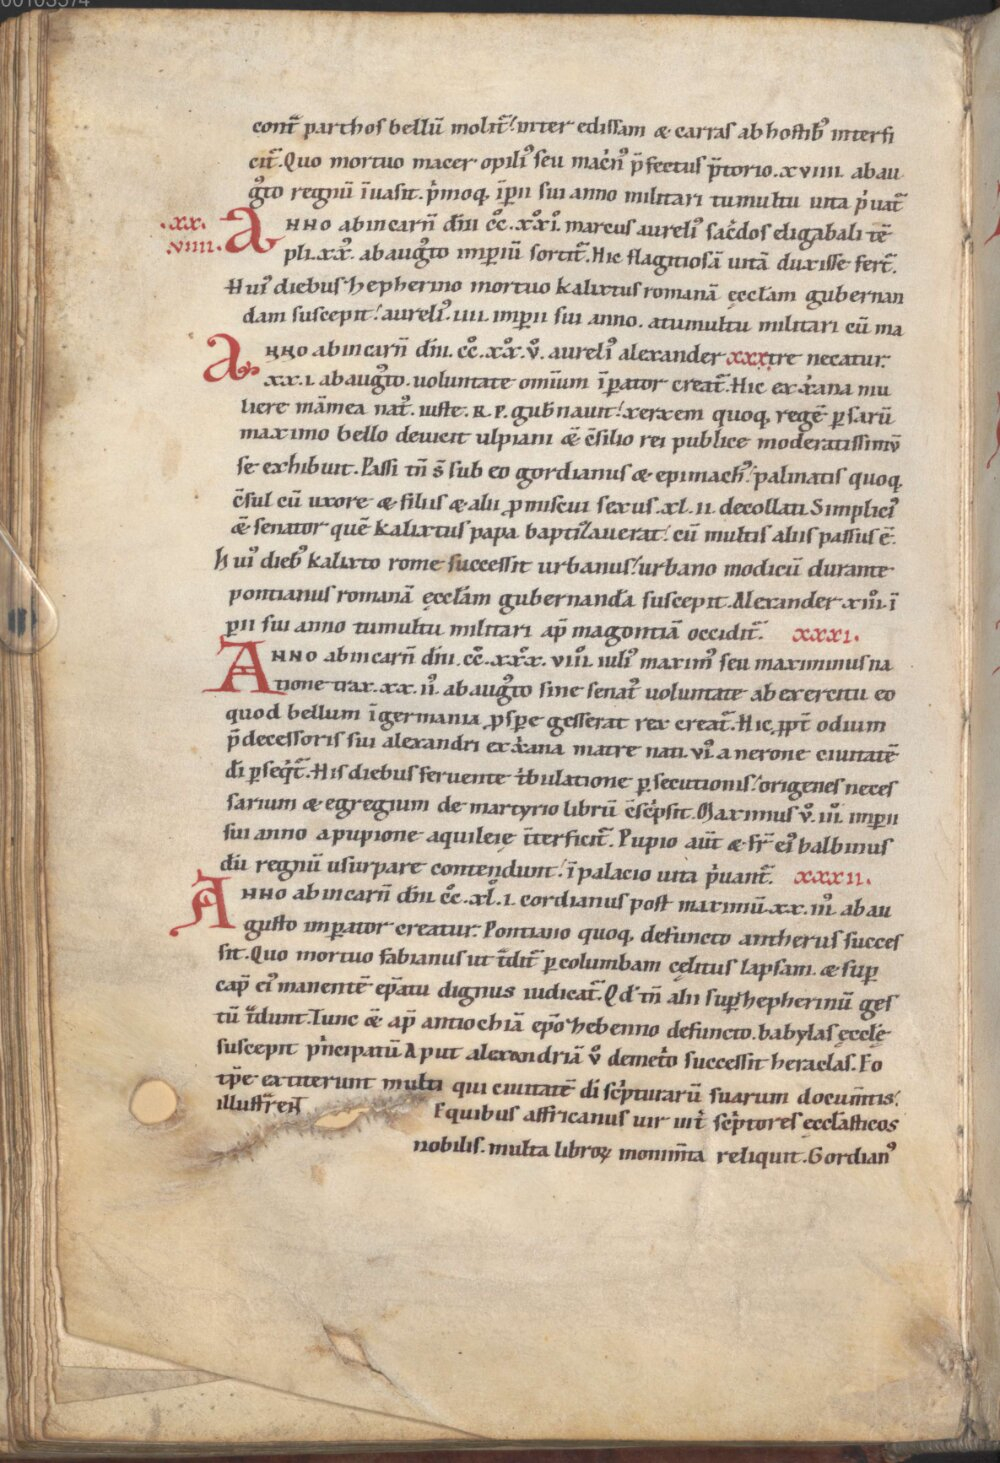 00103374
cont̄ parthos bellū molit̄. inter edissam & carras ab hostib᾽ interfi
cit̄. Quo mortuo macer opili᾽ seu macn᾽ p̄fectus p̄torio. xviiii. abau
gto regnū īuasit. pͥmoq, īperii sui anno militari tumultu uita pͥuat̄
.xx.
viiii.
Anno abincarn̄ dn̄i cͦc. xͦxͦi. marcus aureli᾽ sac̄dos eligabali tē
pli. xͦx. ab augͦto imperiū sortit̄. Hic flagitiosā uitā duxisse fert̄.
Hui᾽ diebus hepherino mortuo kalixtus romanā ęcclam gubernan
dam suscepit. aureli᾽ .iiii. imperii sui anno. atumultu militari cū ma
Anno abincarn̄ dn̄i. cͦc. xͦx. v̊. aureli᾽ alexander xxx tre necatur.
xx.i. ab augͦto. uoluntate omiūm īperator creat̄. Hic ex xͥana mu
liere māmea nat᾽. iuste. R. P. gub̄nauit. xerxem quoq, regē persarū
maximo bello deuicit ulpiani & c̄silio rei publice moderatissimū
se exhibuit. Passi tn̄ s̄ sub eo gordianus & epimach᾽. palmatis quoq,
c̄sul cū uxore & filiis & alii promiscui sexus. xl. ii. decollati Simplici᾽
& senator quē kalixtus papa baptizauerat. cū multis aliis passus ē.
Hui᾽ dieb᾽ kalixto rome successit urbanus. urbano modicū durante
pontianus romanā ęcclam gubernandā suscepit. Alexander xiii. ī
perii sui anno tumultu militari ap̄ magontiā occidit̄. xxxi.
Anno abincarn̄ dn̄i. cͦc. xͦxͦx. viii. iuli᾽ maxim᾽ seu maximinus na
tione trax. xx. ii. ab augͦto sine senat᾽ uoluntate ab exercitu eo
quod bellum ī germania prospere gesserat rex creat̄. Hic ppt̄ odium
p̄decessoris sui alexandri ex xͥana matre nati. vi᾽ a nerone ciuitatē
dī perseqͥt̄. His diebus feruente tͥbulatione persecutionis. origenes neces
sarium & egregium de martyrio librū c̄scͥpsit. Maximus v̊. iii. imperii
sui anno a pupione aquileię īterficit̄. Pupio aūt & fr̄ ei᾽ balbinus
dū regnū usurpare contendunt. ī palacio uita pͥuant̄. xxxii.
Anno abincarn̄ dn̄i cͦc. xͦl. i. cordianus post maximū. xx. iii. abau
gusto imperator creatur. Pontiano quoq, defuncto antherus succes
sit. Quo mortuo fabianus ut t̄dit̄ per columbam cęlitus lapsam. & super
cap̄ ei᾽ manentē ep̄atu dignus iudicat̄. Qd᾽ tn̄ alii super hepherinū ges
tū t̄dunt. Tunc & ap̄ antiochiā ep̄o hebenno defuncto. babylas ęcclę
suscepit pͥncipatū. Aput alexandriā v̊ demetͥo successit heraclas. Eo
tp̄e extiterunt multi qui ciuitatē dī scͥpturarū suarum documtis.
illustrent Equibus affricanus uir int̄ scͥptores ęcclasticos
nobilis. multa libroꝝ monim̄ta reliquit. Gordian᾽